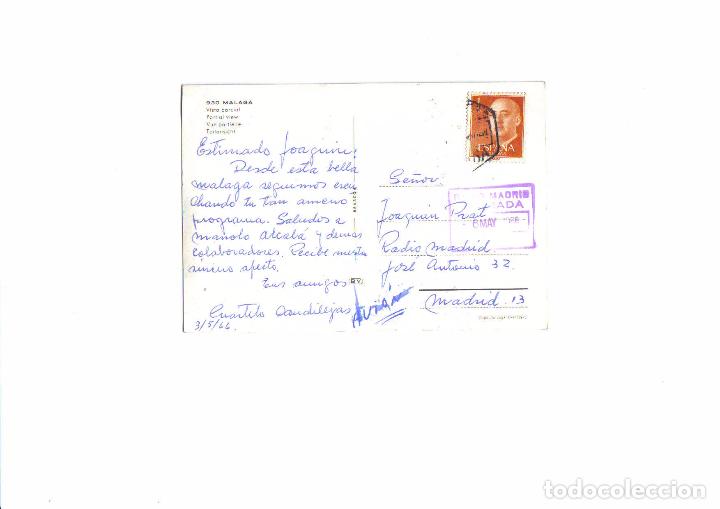 930 MALAGA
Vista parcial
Partial view
Vue partielle
Teilansicht
Estimado Joaquín:
Desde esta bella
malaga seguimos escu
chando tu tan ameno
programa. Saludos a
manolo alcabá y demas
colaboradores. Recibe nuestro
sincero afecto.
Tus amigos
Cuarteto Candilejas
3/5/66
AVIÓN
ESPAÑA
Señor.
Joaquin Prat
Radio Madrid
José Antonio 32
Madrid. 13
MADRID
ADA
- 6 MAY
todocoleccion
todocoleccion.net